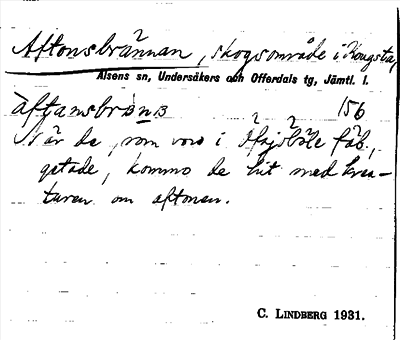 Aftonsbrännan, skogsområde i Kougsta,
Alsens sn, Undersåkers och Offerdals tg, Jämtl. l.
aftansbrɷnɜ 156
När de, som voro i Höjsböle fäb.,
gstade, kommo de hit med krea-
turen om aftonen.
C. LINDBERG 1931.